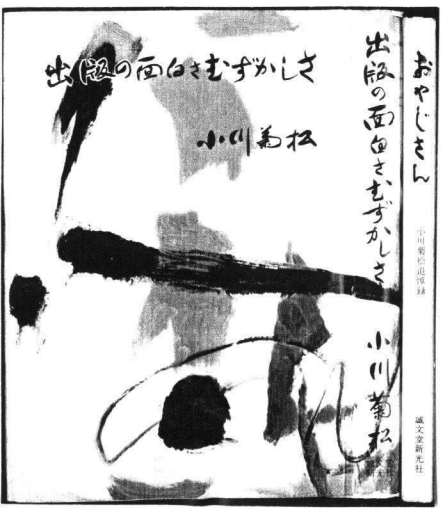 出版の面白さむずかしさ
小川菊松
出版の面白さむずかしさ
小川菊松
おやじさん
小川菊松追悼録
誠文堂新光社